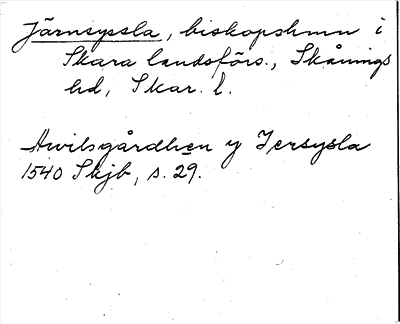 Järnsyssla, biskopshmn i
Skara landsförs., Skånings
hd, Skar. l.
Awilsgårdhen y Jersysla
1540 Skjb, s. 29.